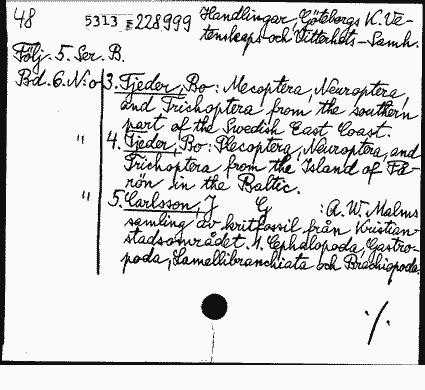 48 5313 228999 Handlingar, Göteborgs K. Ve-
tenskaps och Vitterhets-Samh.
Följ. 5. Ser. B.
Bd. 6. N:o 3. Tjeder, Bo: Mecoptera, Neuroptera,
and Trichoptera from the southern
part of the Swedish East Coast.
" 4. Tjeder, Bo: Plecoptera, Neuroptera, and
Trichoptera from the Island of Få-
rön in the Baltic.
" 5. Carlsson, J G : A. W. Malms
samling av kritfossil från Kristian-
stadsområdet. 1. Cephalopoda, Gastro-
poda, Lamellibranchiata och Brachiopoda.
./.